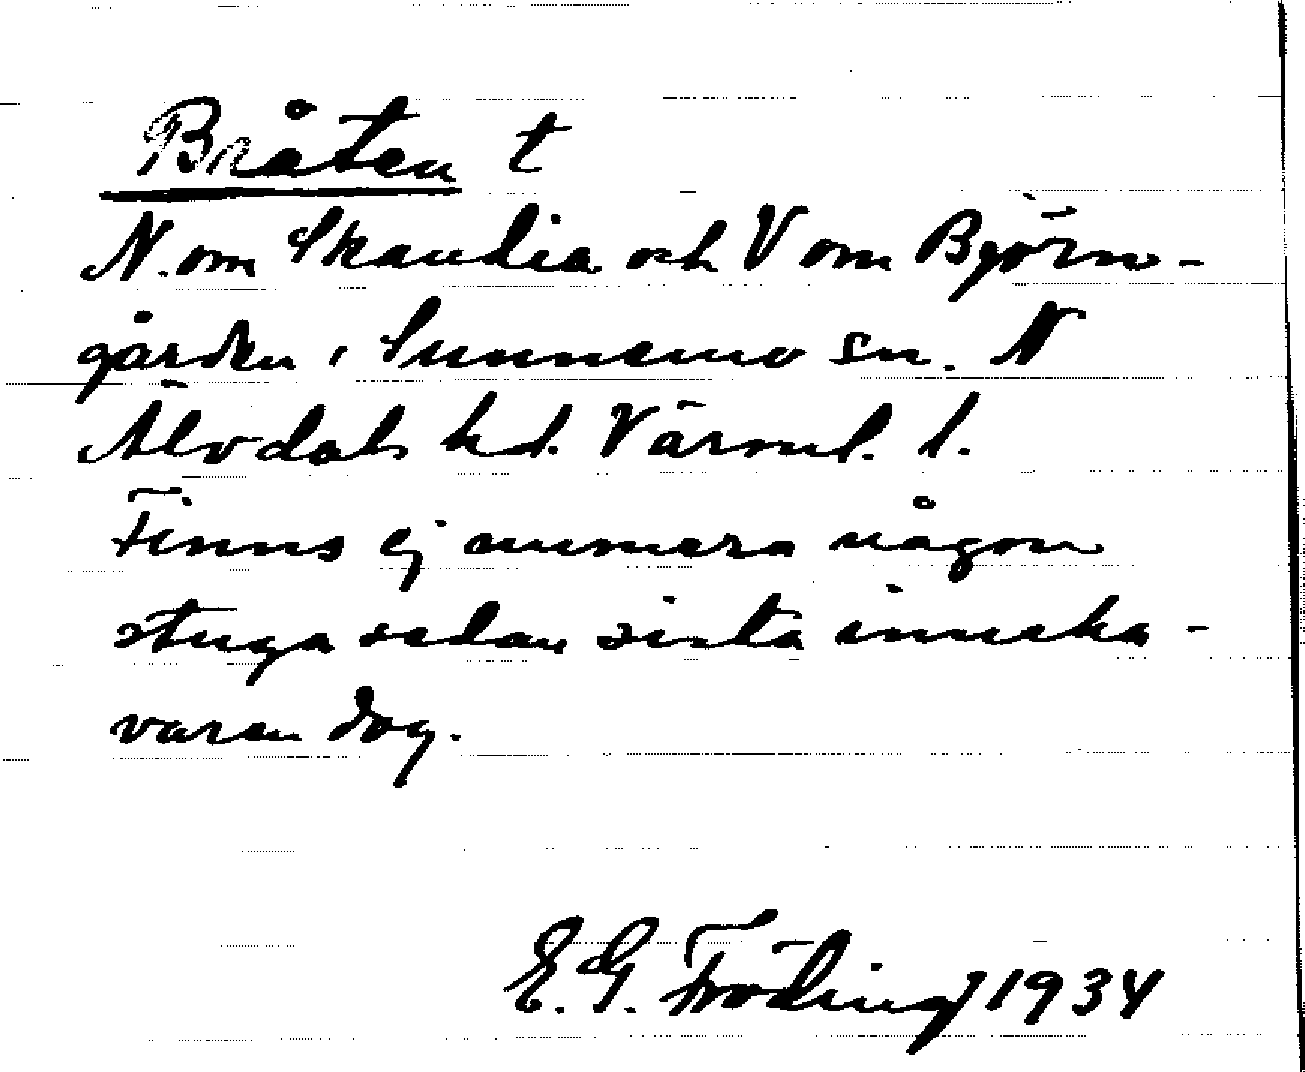 Bråten t
N. om Skandia och V om Björn-
gården i Sunnemo sn. N
Älvdals hd. Värml. l.
Finns ej numera någon
stuga sedan sista inneha-
varen dog.
E. G. Fröding 1934